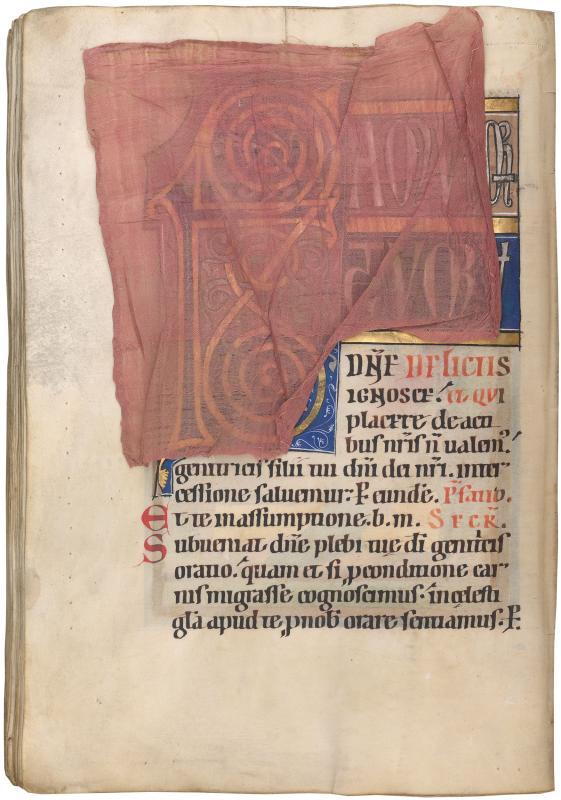 DÑE DELICTIS
IGNOSCE. ut QUI
placere de acti
bus nr̄is n̄ ualem᷒.
genitricis filii tui dn̄i dei nr̄i. inter
cessione saluemur. P eundē.
Et te in assumptione. b. m. SECR̄.
Subueniat dn̄e plebi tue dī genitricis
oratio. quam et si ꝓ conditione car
nis migrasse cognoscimus. in celesti
gl̄a apud te, ꝓ nob̄ orare sentiamus. P.